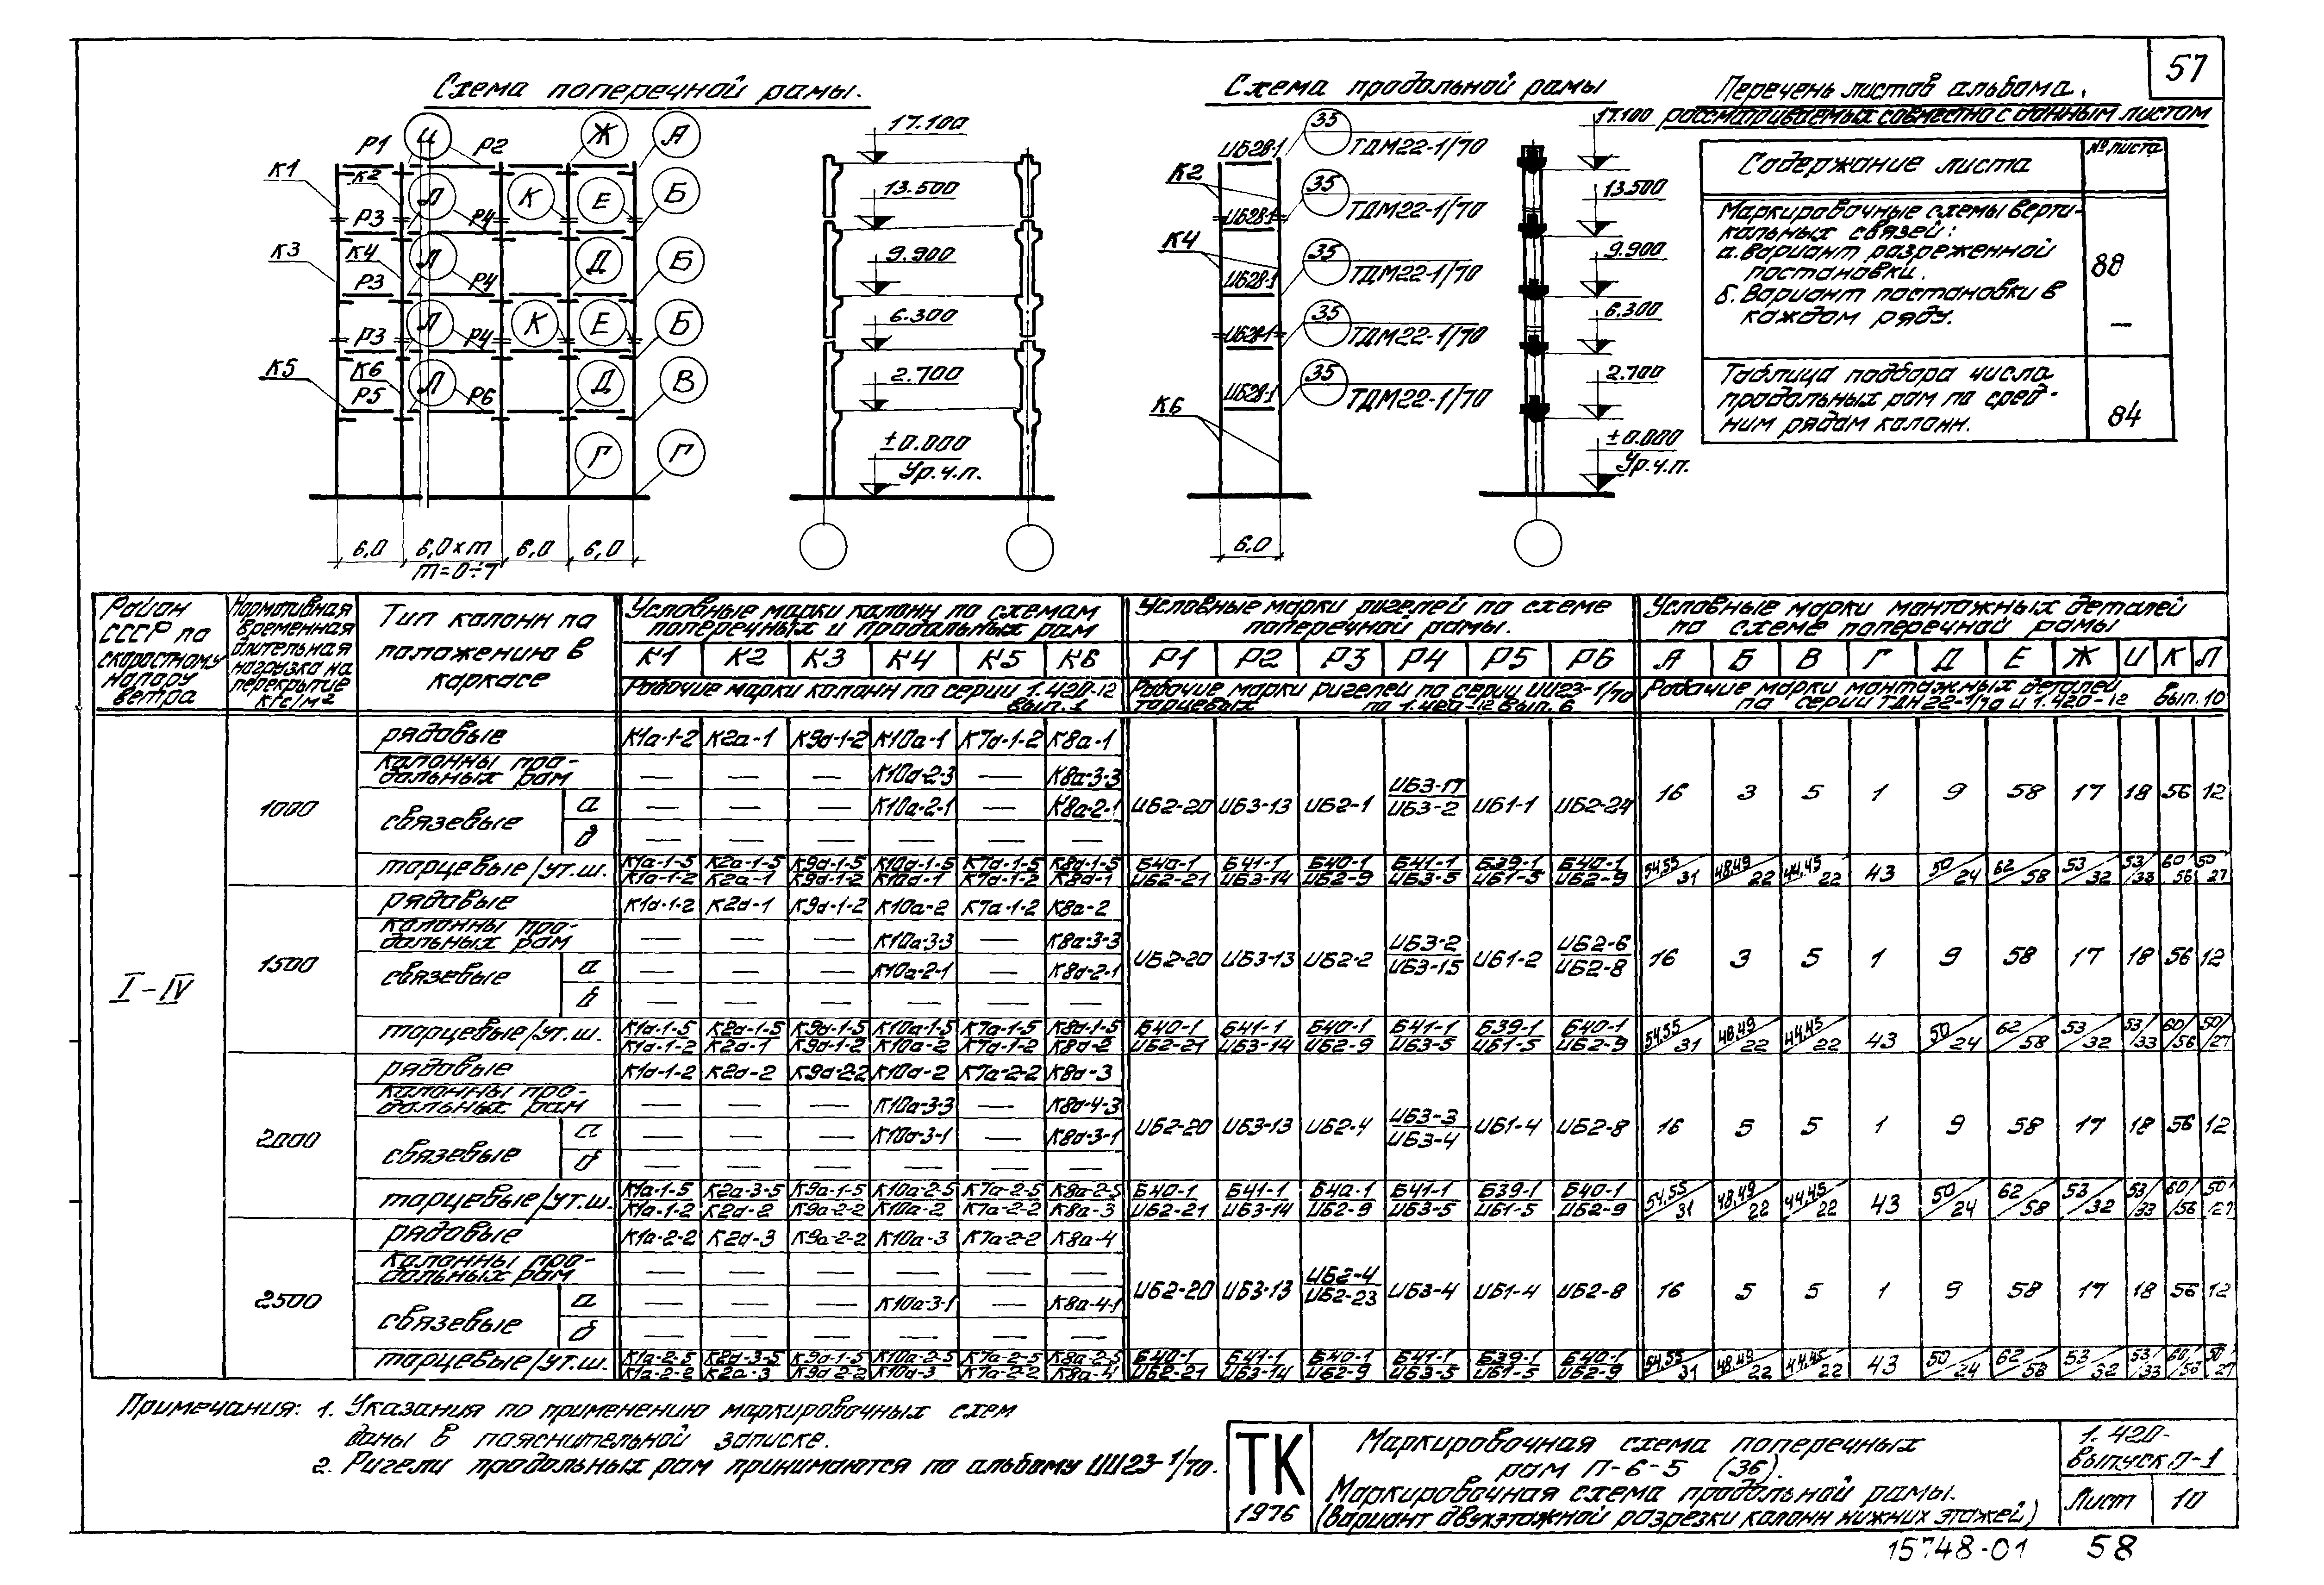 57
Схема поперечной рамы.
Схема продольной рамы
Перечень листов альбома,
рассматриваемых совместно с данным листом
Содержание листа
№ листа
Маркировочные схемы верти-
кальных связей:
а. Вариант разреженной
постановки.
88
б. Вариант постановки в
каждом ряду.
—
Таблица подбора числа
продольных рам по сред-
ним рядам колонн.
84
Р1 И Р2 Ж А
К1 К2 Л К Е Б
Р3 Р4
К3 К4 Л Д Б
Р3 Р4
Л К Е Б
Р3 Р4
К5 К6 Л Д В
Р5 Р6
Г Г
6,0 6,0×m 6,0 6,0
m=0÷7
17.100
13.500
9.900
6.300
2.700
±0.000
Ур.ч.п.
ИБ28-1 35 ТДМ22-1/70
К2
ИБ28-1 35 ТДМ22-1/70
К4
ИБ28-1 35 ТДМ22-1/70
ИБ28-1 35 ТДМ22-1/70
ИБ28-1 35 ТДМ22-1/70
К6
6,0
17.100
13.500
9.900
6.300
2.700
±0.000
Ур.ч.п.
Район СССР по скоростному напору ветра
Нормативная временная длительная нагрузка на перекрытие кгс/м²
Тип колонн по положению в каркасе
Условные марки колонн по схемам поперечных и продольных рам
Условные марки ригелей по схеме поперечной рамы.
Условные марки монтажных деталей по схеме поперечной рамы
К1 К2 К3 К4 К5 К6 Р1 Р2 Р3 Р4 Р5 Р6 А Б В Г Д Е Ж И К Л
Рабочие марки колонн по серии 1.420-12 вып. 1
Рабочие марки ригелей по серии ИИ23-1/70 торцевых по 1.420-12 вып. 6
Рабочие марки монтажных деталей по серии ТДМ22-1/70 и 1.420-12 вып. 10
I-IV
1000
рядовые К1а-1-2 К2а-1 К9а-1-2 К10а-1 К7а-1-2 К8а-1
колонны продольных рам — — — К10а-2-3 — К8а-3-3
связевые а — — — К10а-2-1 — К8а-2-1
б — — — — — —
ИБ2-20 ИБ3-13 ИБ2-1 ИБ3-17/ИБ3-2 ИБ1-1 ИБ2-24 16 3 5 1 9 58 17 18 56 12
торцевые/ут.ш. К1а-1-5/К1а-1-2 К2а-1-5/К2а-1 К9а-1-5/К9а-1-2 К10а-1-5/К10а-1 К7а-1-5/К7а-1-2 К8а-1-5/К8а-1 Б40-1/ИБ2-21 Б41-1/ИБ3-14 Б40-1/ИБ2-9 Б41-1/ИБ3-5 Б39-1/ИБ1-5 Б40-1/ИБ2-9 54,55/31 48,49/22 44,45/22 43 50/24 62/58 53/32 53/33 60/56 50/27
1500
рядовые К1а-1-2 К2а-1 К9а-1-2 К10а-2 К7а-1-2 К8а-2
колонны продольных рам — — — К10а-3-3 — К8а-3-3
связевые а — — — К10а-2-1 — К8а-2-1
б — — — — — —
ИБ2-20 ИБ3-13 ИБ2-2 ИБ3-2/ИБ3-15 ИБ1-2 ИБ2-6/ИБ2-8 16 3 5 1 9 58 17 18 56 12
торцевые/ут.ш. К1а-1-5/К1а-1-2 К2а-1-5/К2а-1 К9а-1-5/К9а-1-2 К10а-1-5/К10а-2 К7а-1-5/К7а-1-2 К8а-1-5/К8а-2 Б40-1/ИБ2-21 Б41-1/ИБ3-14 Б40-1/ИБ2-9 Б41-1/ИБ3-5 Б39-1/ИБ1-5 Б40-1/ИБ2-9 54,55/31 48,49/22 44,45/22 43 50/24 62/58 53/32 53/33 60/56 50/27
2000
рядовые К1а-1-2 К2а-2 К9а-2-2 К10а-2 К7а-2-2 К8а-3
колонны продольных рам — — — К10а-3-3 — К8а-4-3
связевые а — — — К10а-3-1 — К8а-3-1
б — — — — — —
ИБ2-20 ИБ3-13 ИБ2-4 ИБ3-3/ИБ3-4 ИБ1-4 ИБ2-8 16 5 5 1 9 58 17 18 56 12
торцевые/ут.ш. К1а-1-5/К1а-1-2 К2а-3-5/К2а-2 К9а-1-5/К9а-2-2 К10а-2-5/К10а-2 К7а-2-5/К7а-2-2 К8а-2-5/К8а-3 Б40-1/ИБ2-21 Б41-1/ИБ3-14 Б40-1/ИБ2-9 Б41-1/ИБ3-5 Б39-1/ИБ1-5 Б40-1/ИБ2-9 54,55/31 48,49/22 44,45/22 43 50/24 62/58 53/32 53/33 60/56 50/27
2500
рядовые К1а-2-2 К2а-3 К9а-2-2 К10а-3 К7а-2-2 К8а-4
колонны продольных рам — — — — — —
связевые а — — — К10а-3-1 — К8а-4-1
б — — — — — —
ИБ2-20 ИБ3-13 ИБ2-4/ИБ2-23 ИБ3-4 ИБ1-4 ИБ2-8 16 5 5 1 9 58 17 18 56 12
торцевые/ут.ш. К1а-2-5/К1а-2-2 К2а-3-5/К2а-3 К9а-1-5/К9а-2-2 К10а-2-5/К10а-3 К7а-2-5/К7а-2-2 К8а-2-5/К8а-4 Б40-1/ИБ2-21 Б41-1/ИБ3-14 Б40-1/ИБ2-9 Б41-1/ИБ3-5 Б39-1/ИБ1-5 Б40-1/ИБ2-9 54,55/31 48,49/22 44,45/22 43 50/24 62/58 53/32 53/33 60/56 50/27
Примечания: 1. Указания по применению маркировочных схем
даны в пояснительной записке.
2. Ригели продольных рам принимаются по альбому ИИ23-1/70.
ТК
1976
Маркировочная схема поперечных
рам П-6-5 (36).
Маркировочная схема продольной рамы.
(Вариант двухэтажной разрезки колонн нижних этажей)
1.420-
Выпуск 0-1
Лист 10
15748-01 58